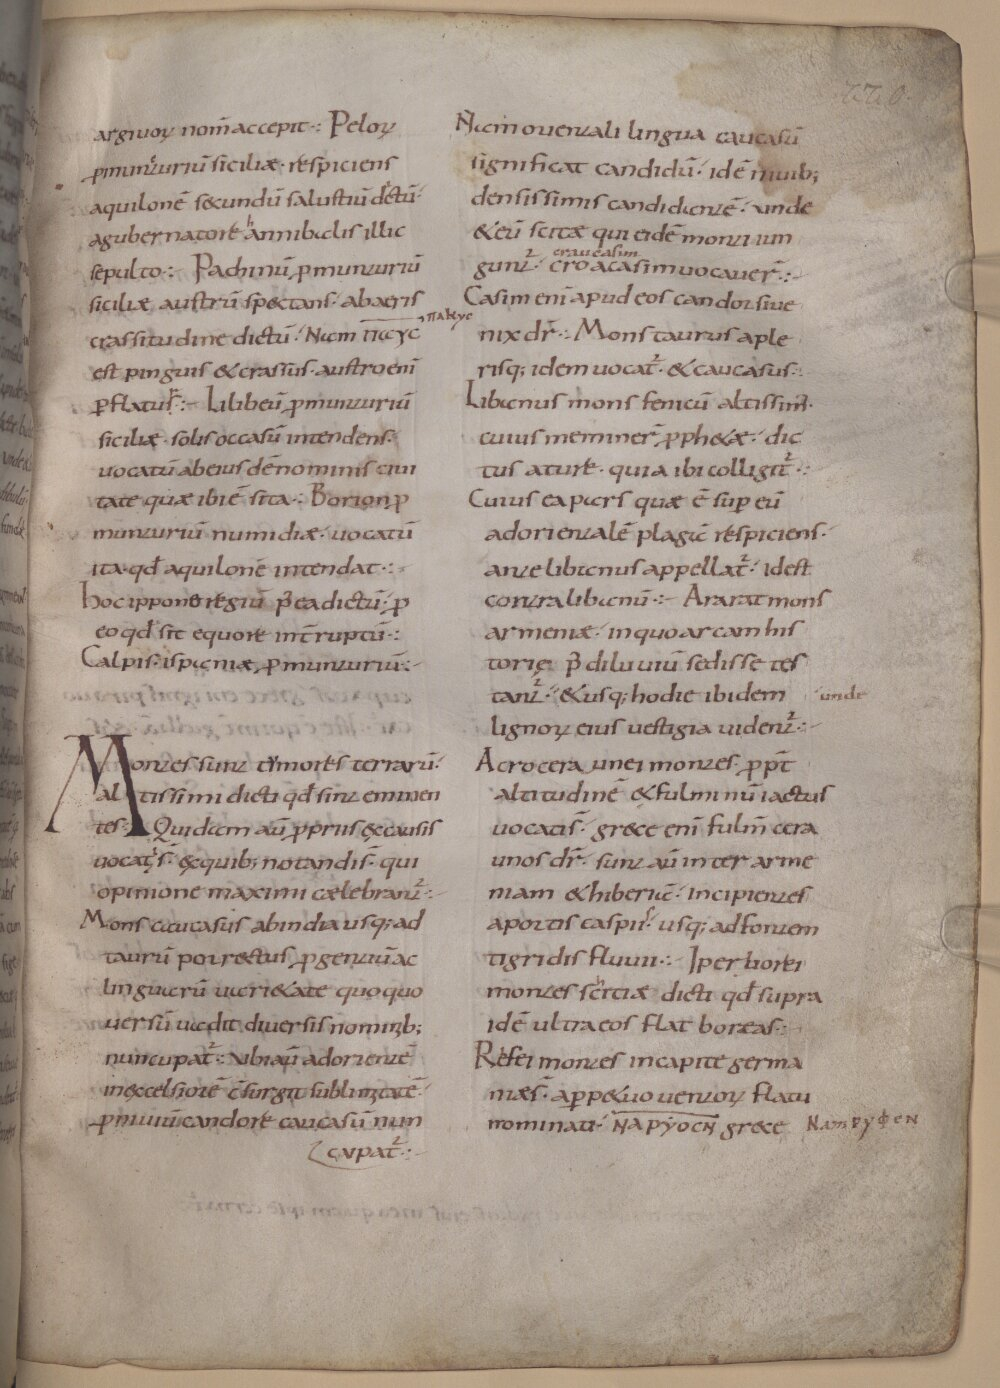 argiuoꝝ nom̄ accepit·: Peloꝝ
ꝓmunturiū siciliæ· respiciens
aquilonē secundū salustiū dictū·
a gubernatore hannibalis illic
sepulto·: Pachinū, ꝓmunturiū
siciliæ austrū spectans· ab aeris
crassitudine dictū· Nam παχυc
est pinguis & crassus· austro enī
ꝑflatur·:- Lilibeū ꝓmunturiū
siciliæ· solis occasū intendens·
uocatū ab eius dēnominis ciui
tate quæ ibi ē sita·: Borion ꝓ
munturiū numidiæ· uocatū
ita· qđ aquilonē intendat·:
hoc ippone regiū p̄ ea dictū· ꝓ
eo qđ sit equore int̄ruptū·:
Calpis· ispaniæ, ꝓmunturiū·:
Montes sunt tumores terrarū·
altissimi dicti qđ sint eminen
tes· Quidam aū ꝓprus ex causis
uocati s̄· ex quib; notandi s̄· qui
opinione maximi cælebrant̄·:
Mons caucasus ab india usq; ad
taurū porrectus, ꝓ gentiū ac
linguarū uarietate quoquo
uersū uadit, diuersis nominib;
nuncupat̄·: Vbi aū ad orientē
in excelsiorē c̄surgit sublimitatē·
ꝓ niuiū candore caucasū nun
cupat̄·:
παχυc
Nam orientali lingua caucasū
significat candidū· idē niuib;
densissimis candidantē· unde
& eū scitæ qui eidē monti iun
gunt̄· croacasim uocauer̄·:
craucasim
Casim enī apud eos candor siue
nix dr̄·: Mons taurus a ple
risq; idem uocat̄· & caucasus·:
Libanus mons fenicū altissim̄·
cuius meminer̄ ꝓphetæ· dic
tus a ture· quia ibi colligit̄·:
Cuius ea pars quæ ē sup eū
ad orientalē plagā respiciens·
antelibanus appellat̄· idest
contra libanū·:- Ararat mons
armeniæ· in quo arcam his
torię p̄ diluuiū sedisse tes
tant̄· & usq; hodie ibidem
unde
lignoꝝ eius uestigia uident̄·:
Acrocera unei montes· ꝓpt̄
altitudinē & fulminū iactus
uocati s̄· grece enī fulm̄ cera
unos dr̄· sunt aū inter arme
niam & hiberiā· incipientes
a portis caspiis· usq; ad fontem
tigridis fluuii·: Iperborei
montes scithiæ dicti qđ supra
idē ultra eos flat boreas·:
Refei montes in capite germa
niæ s̄· a ppetuo uentoꝝ flatu
nominati· ΝΑΡΥΟCΝ grece